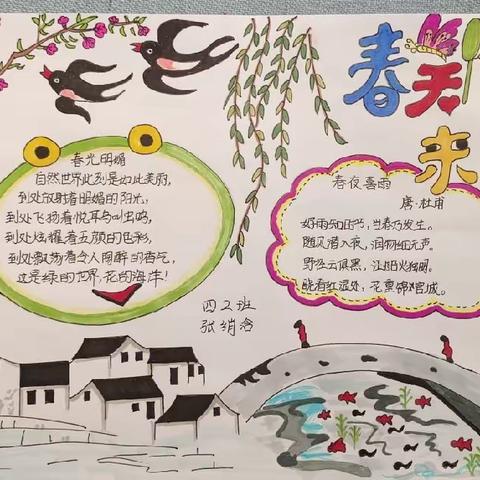 春天来
春光明媚
自然世界此刻是如此美丽,
到处放射着明媚的阳光,
到处飞扬着悦耳鸟叫虫鸣,
到处炫耀着五颜的色彩,
到处散扬着令人陶醉的香气,
这是绿的世界,花的海洋!
春夜喜雨
唐·杜甫
好雨知时节,当春乃发生。
随风潜入夜,润物细无声。
野径云俱黑,江船火独明。
晓看红湿处,花重锦官城。
四2班
张